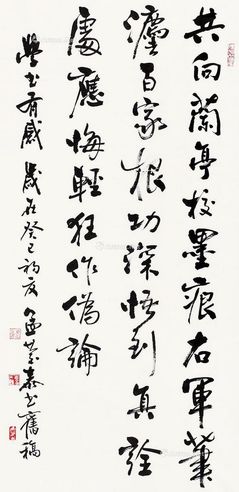 共向蘭亭校墨痕右軍筆
灋百家根功深悟到真詮
處應悔輕狂作偽論
學书有感 歲在癸巳初夏 孟书舊稿